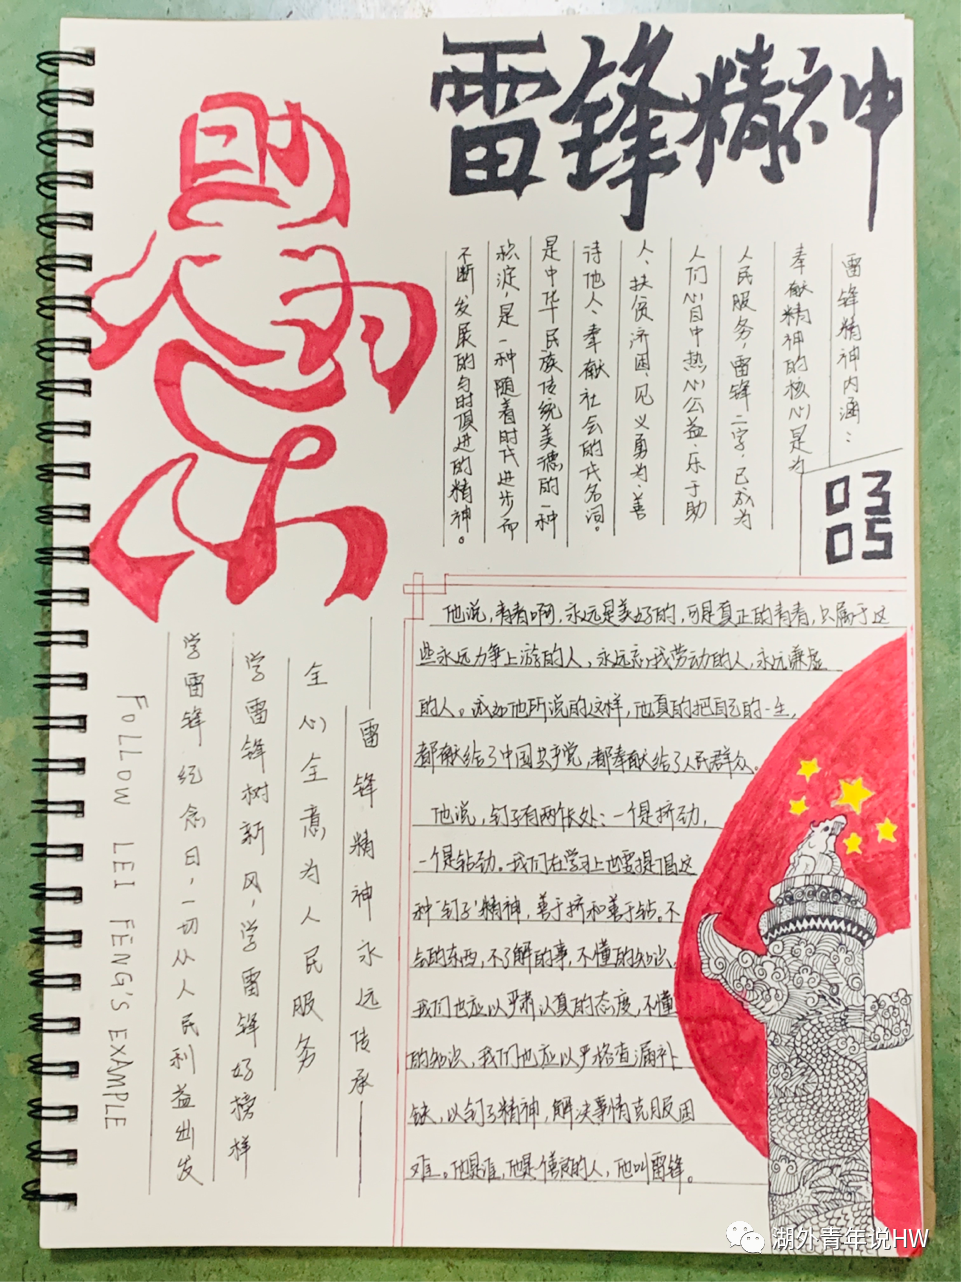 雷锋精神
助人为乐
雷锋精神内涵：
奉献精神的核心是为
人民服务，雷锋二字，已成为
人们心目中热心公益、乐于助
人、扶贫济困、见义勇为、善
待他人、奉献社会的代名词。
是中华民族传统美德的一种
积淀，是一种随着时代进步而
不断发展的与时顶进的精神。
03
05
他说，青春啊，永远是美好的，可是真正的青春，只属于这
些永远力争上游的人，永远忘我劳动的人，永远谦虚
的人。诚如他所说的这样，他真的把自己的一生，
都献给了中国共产党，都奉献给了人民群众。
他说，钉子有两个长处：一个是挤劲，
一个是钻劲。我们在学习上也要提倡这
种“钉子”精神，善于挤和善于钻。不
会的东西，不了解的事，不懂的知识，
我们也应以严肃认真的态度，不懂
的知识，我们也应以严格查漏补
缺，以钉子精神，解决事情克服困
难。他是谁，他是傻的人，他叫雷锋。
雷锋精神永远传承
全心全意为人民服务
学雷锋树新风，学雷锋好榜样
学雷锋纪念日，一切从人民利益出发
FOLLOW LEI FENG'S EXAMPLE
湖外青年说HW